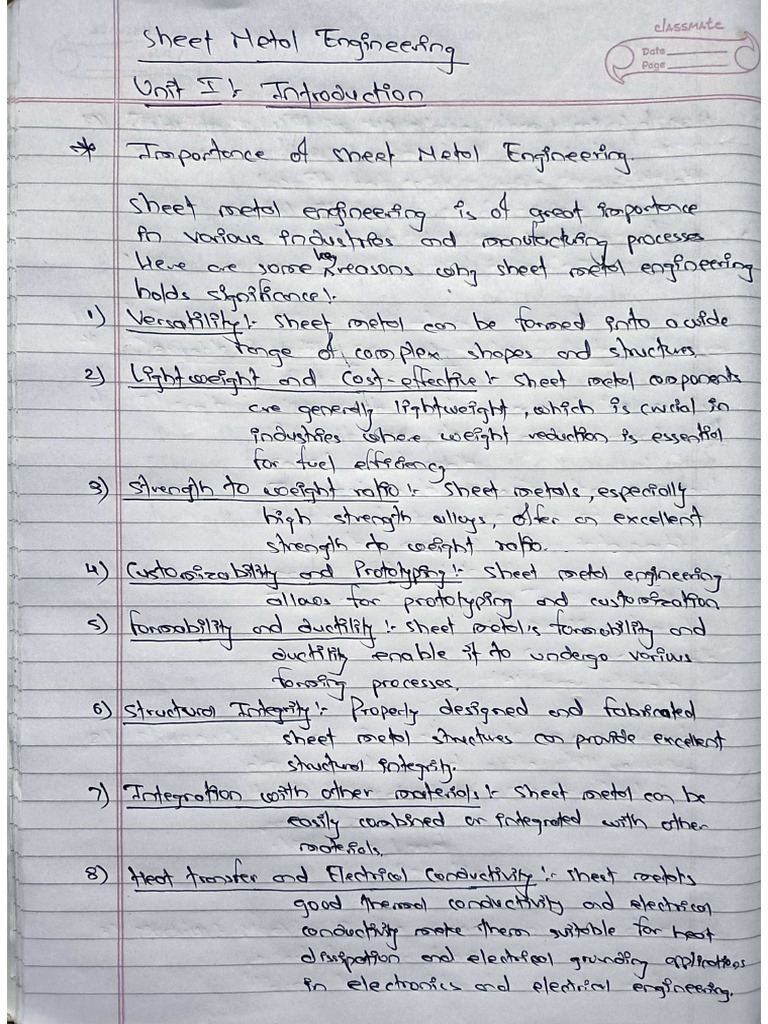 classmate
Date
Page
Sheet Metal Engineering
Unit I :- Introduction
* Importance of Sheet Metal Engineering.
Sheet metal engineering is of great importance
in various industries and manufacturing processes
Here are some key reasons why sheet metal engineering
holds significance:-
1) Versatility:- Sheet metal can be formed into a wide
range of complex shapes and structures
2) Lightweight and Cost-effective:- Sheet metal components
are generally lightweight, which is crucial in
industries where weight reduction is essential
for fuel efficiency
3) Strength to weight ratio:- Sheet metals, especially
high strength alloys, offer an excellent
strength to weight ratio.
4) Customizability and Prototyping:- Sheet metal engineering
allows for prototyping and customization
5) Formability and ductility:- Sheet metal's formability and
ductility enable it to undergo various
forming processes.
6) Structural Integrity:- Properly designed and fabricated
sheet metal structures can provide excellent
structural integrity.
7) Integration with other materials:- Sheet metal can be
easily combined or integrated with other
materials.
8) Heat transfer and Electrical Conductivity:- Sheet metals
good thermal conductivity and electrical
conductivity make them suitable for heat
dissipation and electrical grounding applications
in electronics and electrical engineering.